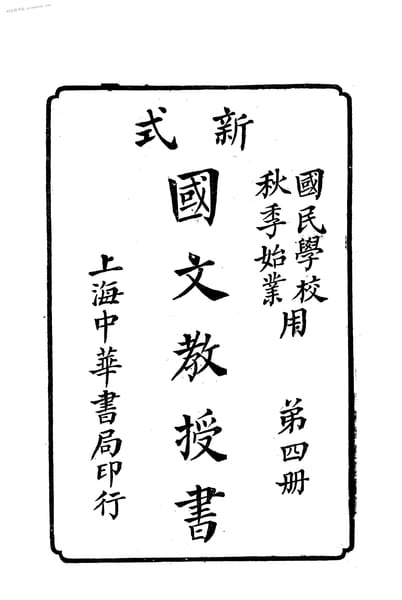 新式
國民學校
秋季始業用
第四册
國文教授書
上海中華書局印行